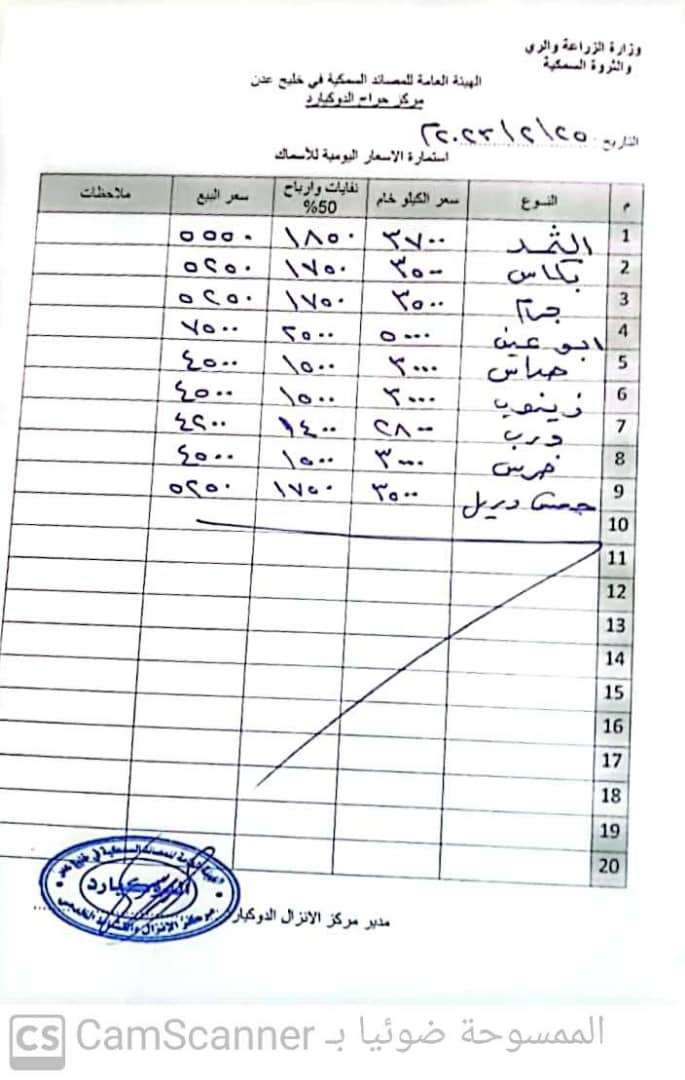 وزارة الزراعة والري
والثروة السمكية
الهيئة العامة للمصائد السمكية في خليج عدن
مركز حراج الدوكيارد
التاريخ ٢٠٢٣/٢/٢٥م
استمارة الاسعار اليومية للأسماك
م النوع سعر الكيلو خام نفايات وارباح 50% سعر البيع ملاحظات
1 الثمد ٣٧٠٠ ١٨٥٠ ٥٥٥٠
2 بكاس ٣٥٠٠ ١٧٥٠ ٥٢٥٠
3 جرام ٣٥٠٠ ١٧٥٠ ٥٢٥٠
4 ابو عين ٥٠٠٠ ٢٥٠٠ ٧٥٠٠
5 ٣٠٠٠ ١٥٠٠ ٤٥٠٠
6 زينوب ٣٠٠٠ ١٥٠٠ ٤٥٠٠
7 درب ٢٨٠٠ ١٤٠٠ ٤٢٠٠
8 ٣٠٠٠ ١٥٠٠ ٤٥٠٠
9 ٣٥٠٠ ١٧٥٠ ٥٢٥٠
10
11
12
13
14
15
16
17
18
19
20
مدير مركز الانزال الدوكيارد
الهيئة العامة للمصائد السمكية في خليج عدن
الدوكيارد
CS CamScanner الممسوحة ضوئيا بـ